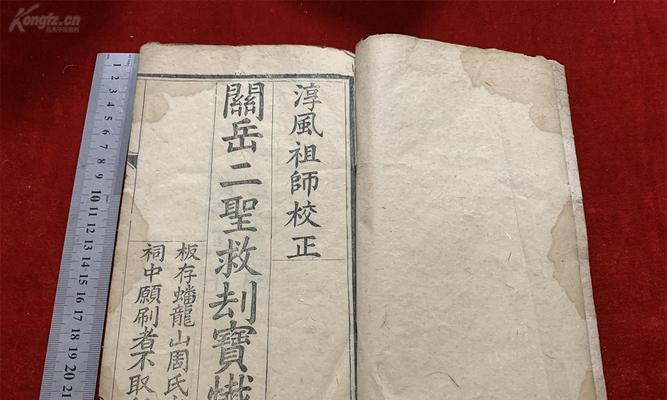 Kongfz.cn
淳風祖師校正
關岳二聖救刦寶懺
板存蟠龍山周氏
祠中願刷者不取
1 2 3 4 5 6 7 8 9 10 11 12 13 14 15 16 17 18 19 20 21